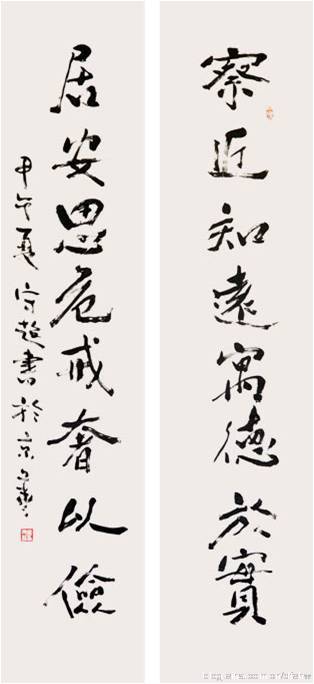 察近知遠寓德於實
居安思危戒奢以儉
甲午夏守哲書於京華